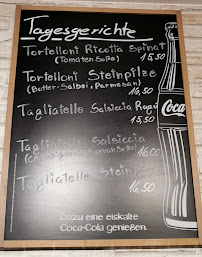 Tagesgerichte
Tortelloni Ricotta Spinat
(Tomaten Soße) 15,50
Tortelloni Steinpilze
(Butter-Salbei, Parmesan) 16,50
Tagliatelle Salsiccia Ragú
15,50
Tagliatelle Salsiccia
Soße) 16,00
Tagliatelle Steinpilze
16,50
Coca
Dazu eine eiskalte
Coca-Cola genießen.